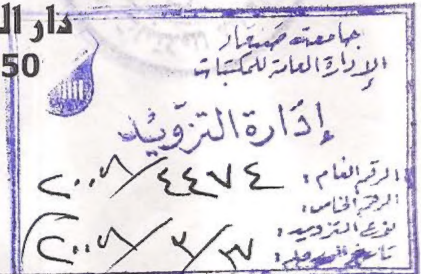 دار ال
50
جامعة صنعاء
الإدارة العامة للمكتبات
إدارة التزويد
الرقم العام: ٤٤٧٤ / ٢٠٠٨
الرقم الخاص:
نوع التزويد:
٢٠٠٨ / ٣ /